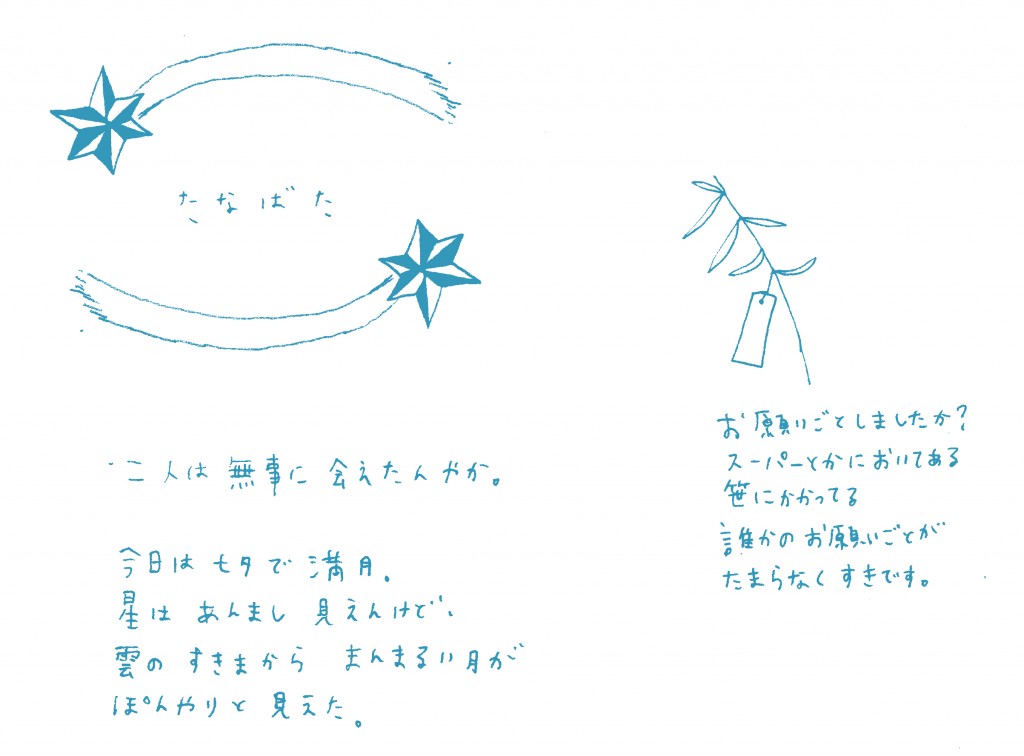 たなばた
二人は 無事に 会えたんやか。
今日は 七夕で 満月。
星は あんまし 見えんけど、
雲の すきまから まんまるい月が
ぼんやりと 見えた。
お願いごとしましたか?
スーパーとかにおいてある
笹にかかってる
誰かのお願いごとが
たまらなくすきです。